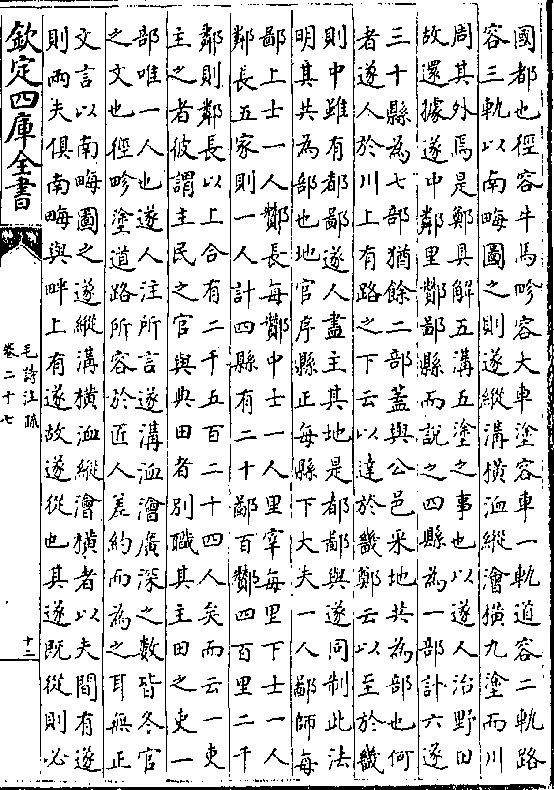 國都也徑容牛馬畛容大車塗容車一軌道容二軌路
容三軌以南畮圖之則遂縱溝橫洫縱澮橫九塗而川
周其外焉是鄭具解五溝五塗之事也以遂人治野田
故還據遂中鄰里酇鄙縣而說之四縣為一部計六遂
三十縣為七部猶餘二部蓋與公邑采地共為部也何
者遂人於川上有路之下云以達於畿鄭云以至於畿
則中雖有都鄙遂人盡主其地是都鄙與遂同制此法
明其共為部也地官序縣正每縣下大夫一人鄙師每
鄙上士一人酇長每酇中士一人里宰每里下士一人
鄰長五家則一人計四縣有二十鄙百酇四百里二千
鄰則鄰長以上合有二千五百二十四人矣而云一吏
主之者彼謂主民之官與典田者別職其主田之吏一
部唯一人也遂人注所言遂溝洫澮廣深之數皆冬官
之文也徑畛塗道路所容於匠人差約而為之耳無正
文言以南畮圖之遂縱溝橫洫縱澮橫者以夫間有遂
則兩夫俱南畮與畔上有遂故遂從也其遂既從則必
欽定四庫全書
毛詩注疏
卷二十七
十二